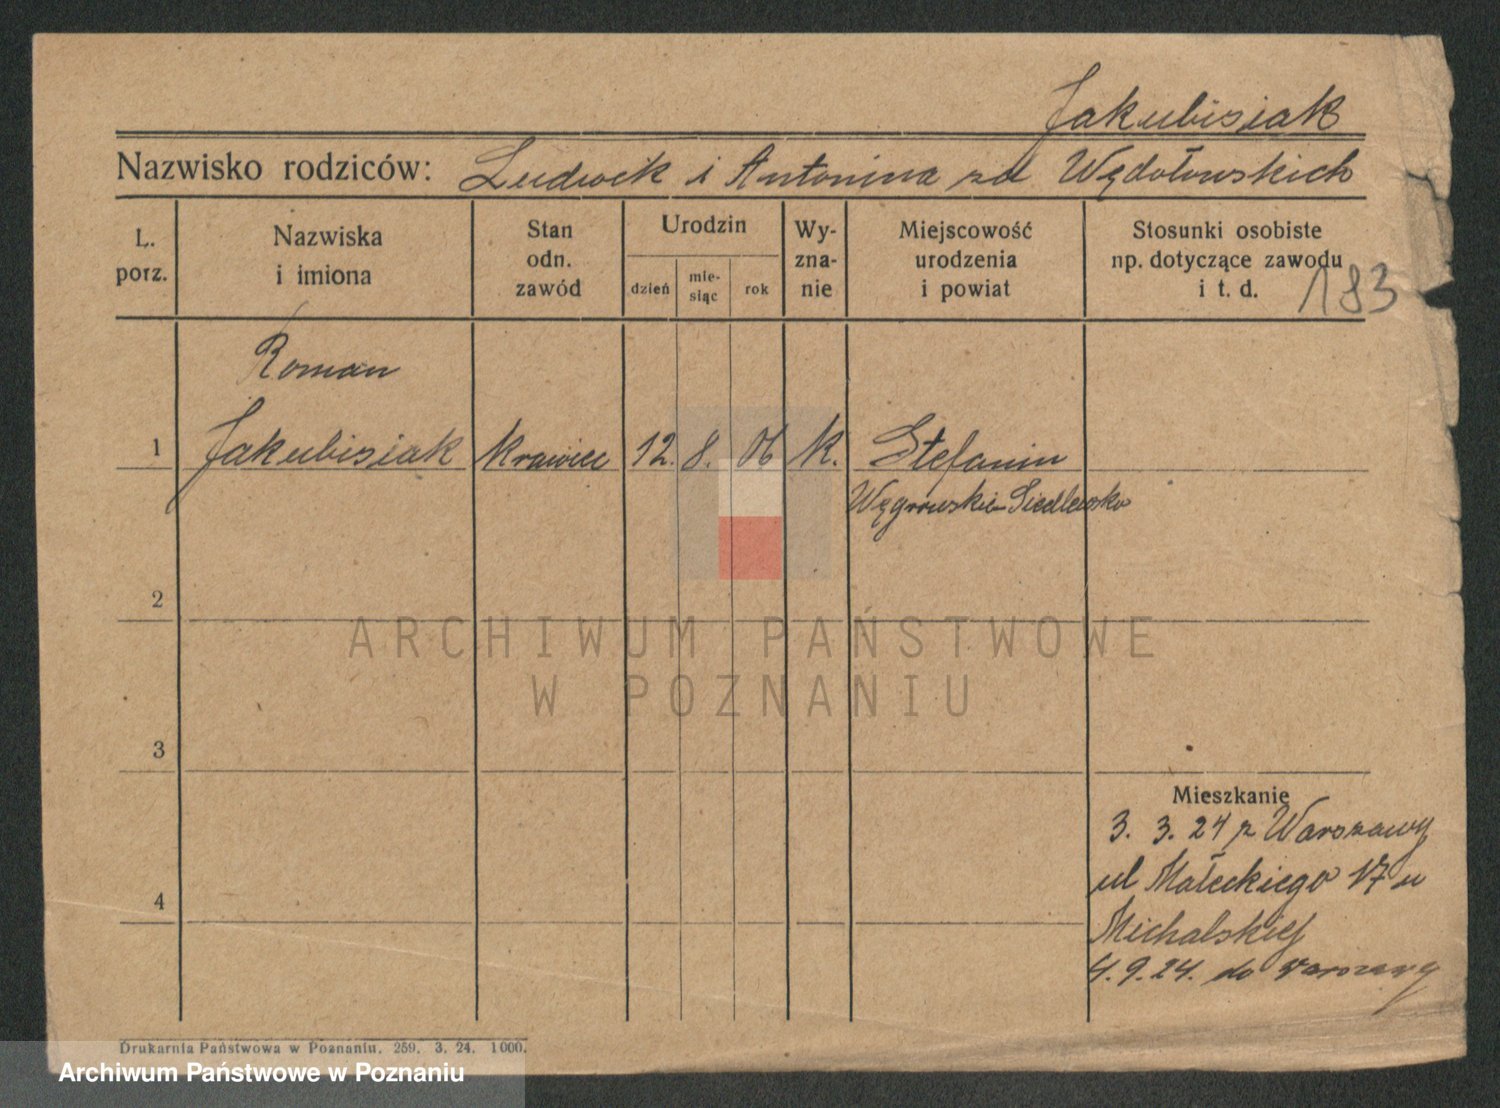 Jakubisiak
Nazwisko rodziców: Ludwik i Antonina zd Wędołowskich
L. porz.
Nazwiska i imiona
Stan odn. zawód
Urodzin
dzień
mie-
siąc
rok
Wy-
zna-
nie
Miejscowość
urodzenia
i powiat
Stosunki osobiste
np. dotyczące zawodu
i t. d.
183
Roman
1 Jakubisiak krawiec 12. 8. 06 k. Stefanin
Węgrowskie Siedlewsko
2
3
4
Mieszkanie
3. 3. 24 z Warszawy
ul Małeckiego 17 u
Michalskiej
4. 9. 24. do Warszawy
Drukarnia Państwowa w Poznaniu. 259. 3. 24. 1000.
ARCHIWUM PAŃSTWOWE
W POZNANIU
Archiwum Państwowe w Poznaniu